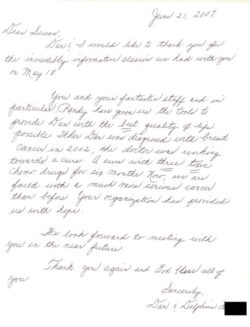 June 21, 2007
Dear Susan,
Dan & I would like to thank you for
the incredibly informative session we had with you
on May 18.
You and your fantastic staff and in
particular Randy have given us the tools to
provide Dan with the best quality of life
possible. When Dan was diagnosed with breast
Cancer in 2002, the doctor was working
towards a cure. A cure with three toxic
chemo drugs for six months. Now, we are
faced with a much more serious cancer
than before. Your organization has provided
us with hope.
We look forward to meeting with
you in the near future.
Thank you again and God bless all of
you.
Sincerely,
Dan & Delphine